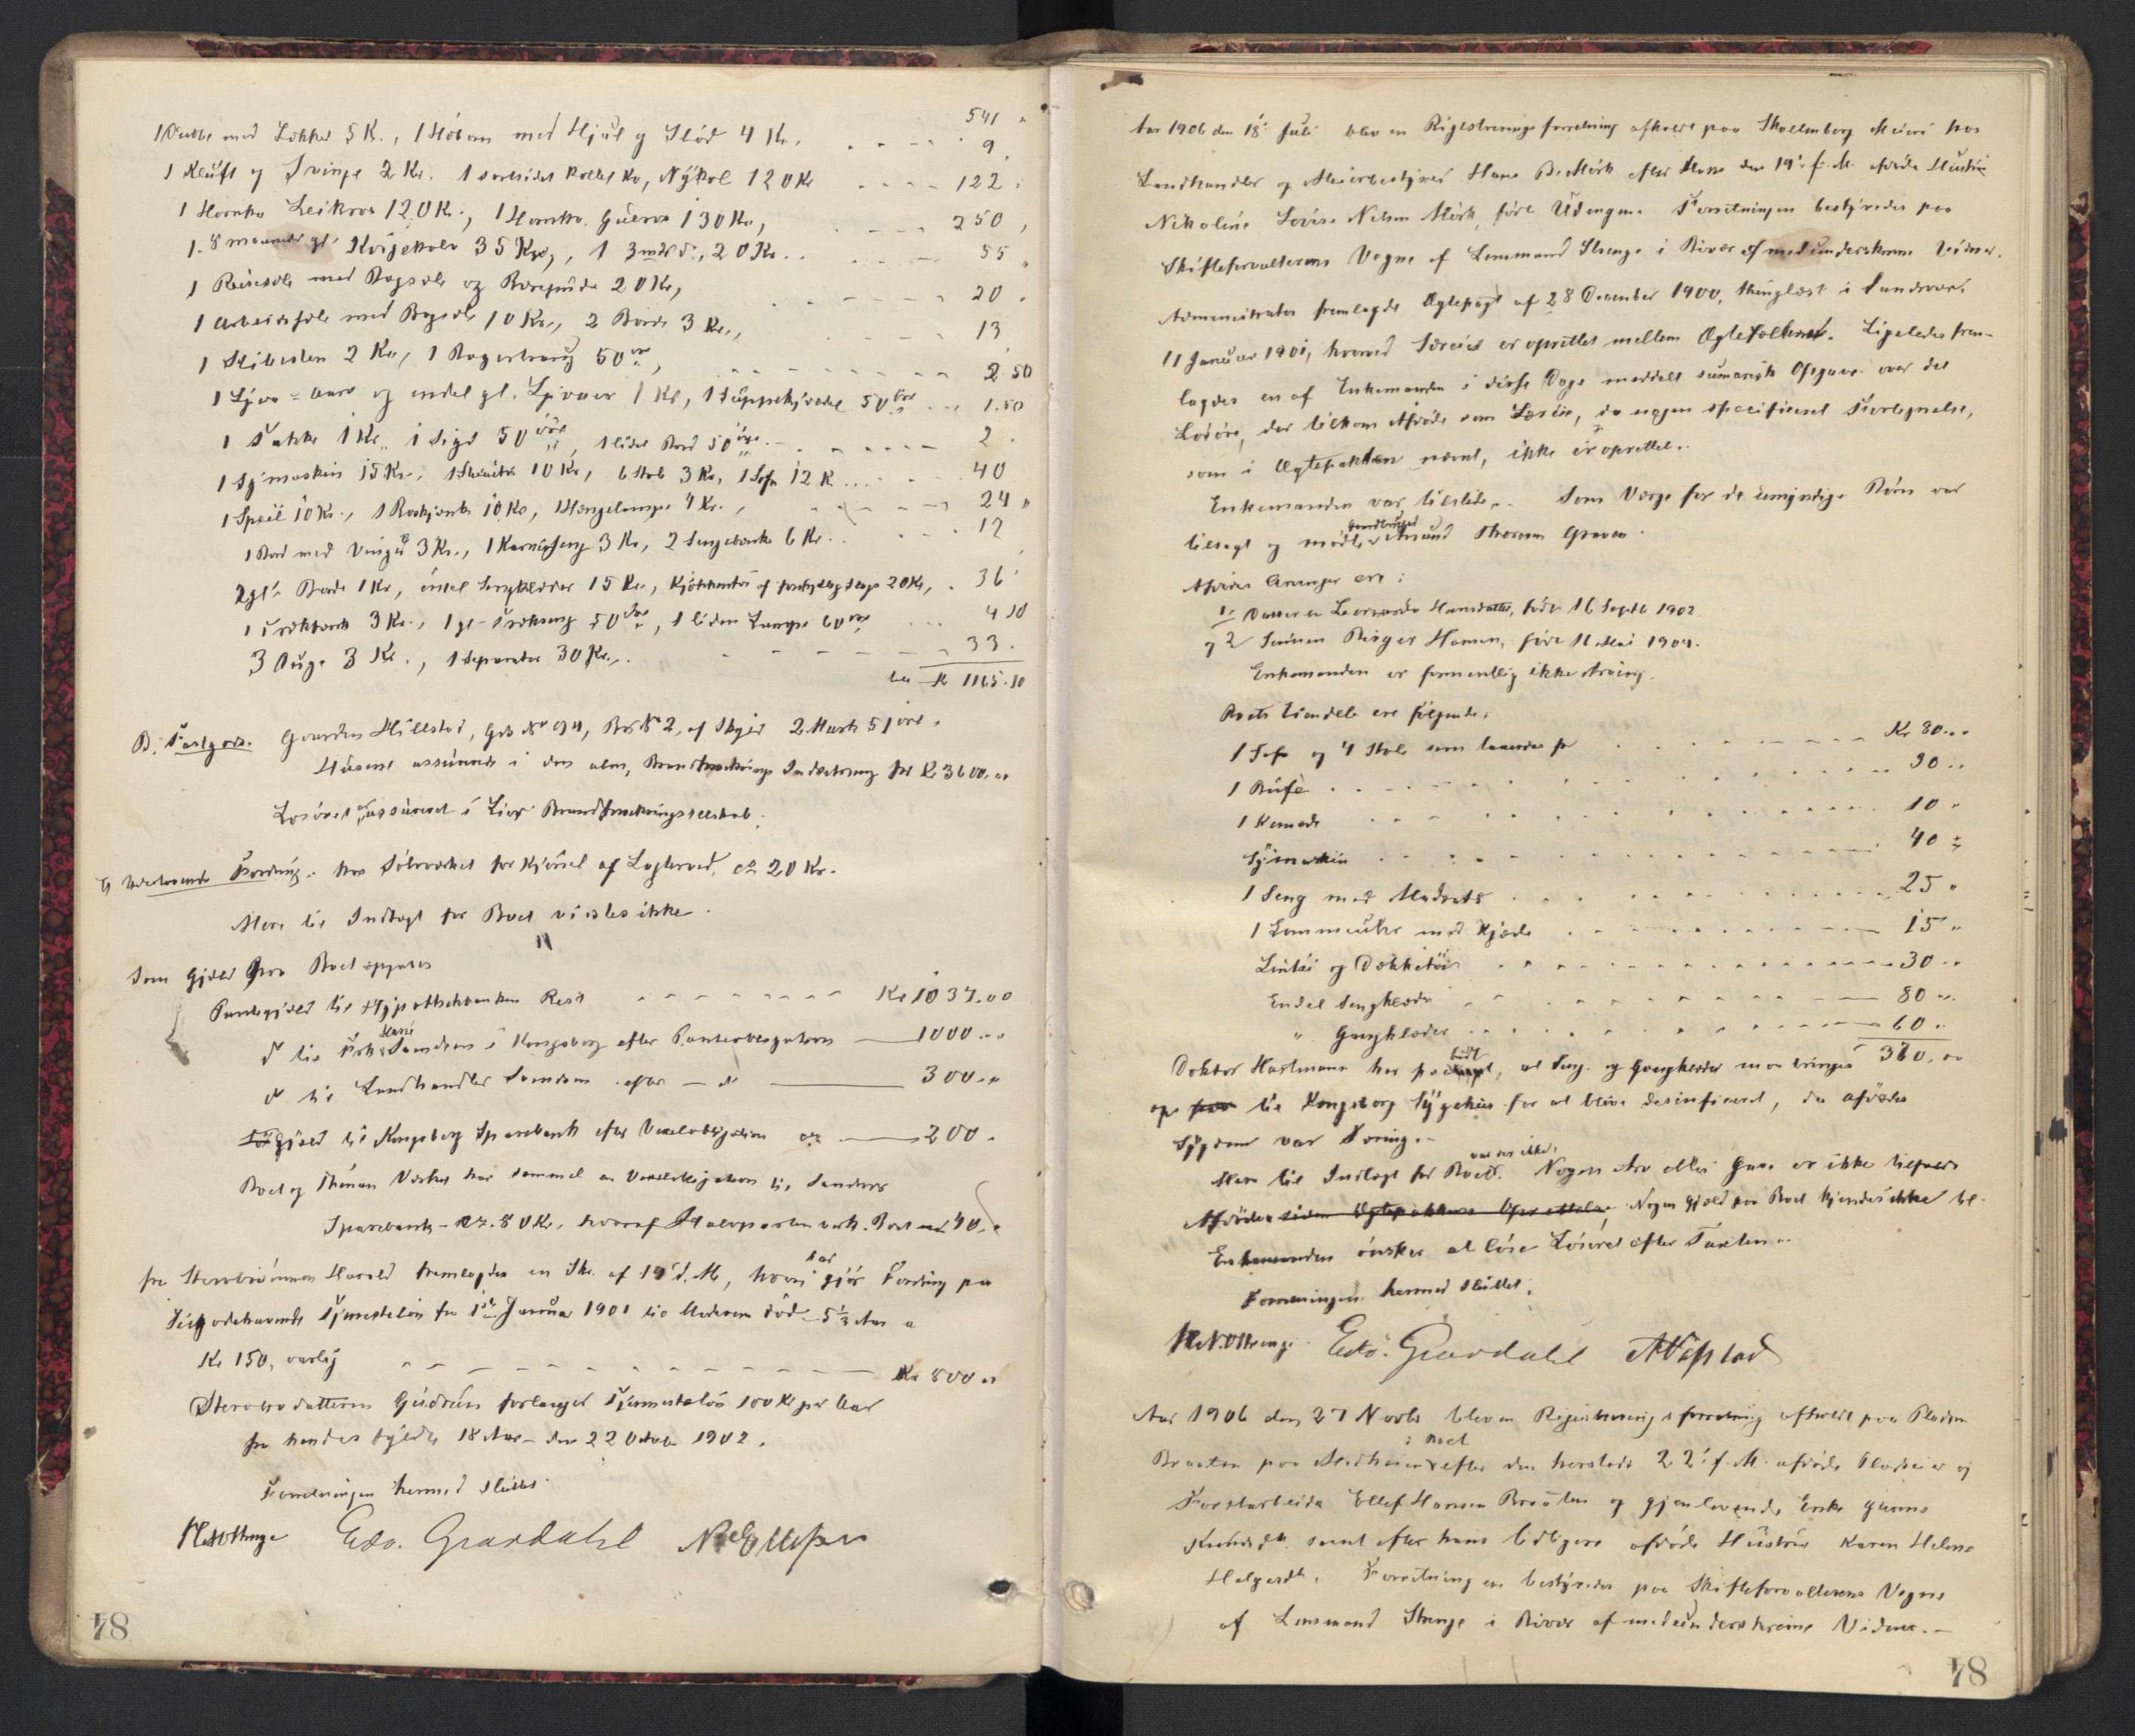 541 "
1 Krubbe med Lokker 5 Kr., 1 Høbom med Hjul og Slæd 4 Kr. 9.
1 Kløft og Svinge 2 Kr. 1 sortsidet kollet Ko, Nykol 120 Kr 122 :
1 Hornko Leikros 120 Kr., 1 Hornko Gueros 130 Kr, 250,
1. 8 maaneder gl. Kvigekalv 35 Kr, 1 3 mdr do., 20 Kr. 55 "
1 Reisesæle med Bogsæle og Rosepude 20 Kr, 20.
1 Arbeidssæle med Bogsæle 10 Kr., 2 Borde 3 Kr., 13
1 Slibesten 2 Kr, 1 Bagertraug 50 øre, 2 50
1 Ljaa og endel gl. Kr, 50 øre 1.50
1 Takke 1 Kr, 1 Sigd 50 øre, 1 lidet Bord 50 øre. 2.
1 Symaskin 15 Kr., 10 Kr, 6 Stole 3 Kr, 1 Sofa 12 K 40
1 Speil 10 Kr., 10 Kr, 1 Hængelampe 4 Kr., 24 "
1 Bord med Vinger 3 Kr., 1 Karnapseng 3 Kr, 2 Sengebænke 6 Kr. 12
2 gl. Borde 1 Kr, endel Sengklæder 15 Kr, Kjøkkentøi af forskjellig slags 20 Kr, 36
3 Kr., 1 gl. 50 øre, 1 liden Lampe 60 øre 4 10
3 Duge 3 Kr., 1 Separator 30 Kr., 33.
Kr 1165.10
B. Fastgods. Gaarden Hillestad, Grd No 94, Br No 2, af Skyld 2 Mark 51 øre.
Husene assureret i den alm. Brandforsikrings Indretning for Kr 3600.00
Løsøret er assureret i Brandforsikringsselskab.
C, Udestaaende Fordring. hos Sølvverket for Kjørsel af Lagterved, ca 20 Kr.
Mere til Indtægt for Boet vistes ikke.
Som Gjæld paa Boet opgaves
Pantegjæld til Hypothekbanken Rest Kr 1037.00
do til Frk. Marie Samdsens i Kongsberg efter Panteobligation 1000 "
do til Landhandler efter – do 300 "
Gjæld til Kongsberg Sparebank efter Vexelobligation ca 200.
Boet og har sammen en Vexelobligation til Sandsvær
Sparebank – ca. 80 Kr, hvoraf Halvparten vedk. Boet med 40.
fra Harald fremlagdes en Skr. af 19 d. M, hvori har gjør Fordring paa
Tilgodehavende Tjenesteløn fra 1ste Januar 1901 til Moderens død – 5 1/3 Aar a
Kr 150, aarlig Kr 800 "
Gudrun forlanger Tjenesteløn 100 Kr per Aar
fra hendes fyldte 18 Aar – den 22 Oktober 1902.
Forretningen hermed sluttet.
Edv. Grardahl
84
Aar 1906 den 18. Juli blev en Registreringsforretning afholdt paa Skollenborg Meieri hos
Landhandler og Meieribestyrer Hans B. Mørk efter Hans den 19. f. M. afdøde Hustru
Nikoline Lovise Nelsen Mørk, født Udengene. Forretningen bestyredes paa
Skifteforvalterens Vegne af Lensmand Strenge i Bivær af medunderskrevne Vidner.
Administrator fremlagde Ægtepagt af 28 December 1900, thinglæst i Sandsvær
11 Januar 1901, hvorved Særeie er oprettet mellem Ægtefolkene. Ligeledes frem-
lagdes en af Enkemanden i disse Dage meddelt summarisk Opgave over det
Løsøre, der tilkom Afdøde som Særeie, da nogen specificeret Fortegnelse,
som i Ægtepakten nævnt, ikke er oprettet.
Enkemanden var tilstede. – Som Værge for de umyndige Børn var
tilsagt og mødte Gaardbruger Thoresen Graven.
Afdødes Arvinger ere:
1. Datteren Hansdatter, født 16 Septb 1902
og 2 Sønnen Birger Hansen, født 11 Mai 1904.
Enkemanden er formentlig ikke Arving.
Boets Eiendele ere følgende:
1 Sofa og 4 Stole som taxeredes for Kr 80 "
1 Büfè 30 "
1 Komode 10 "
Symaskin 40 "
1 Seng med Madrats 25 "
1 Lommeuhr med Kjæde 15 "
Lintøi og Dækketøi 30 "
Endel Sengklæder 80 "
" Gangklæder 60 "
370.00
Doktor Hartmann har paabudt, at Seng- og Gangklæder maa bringes
op til Kongsberg Sygehus for at blive desinficeret, da afdødes
Sygdom var Tæring. –
Mere til Indtægt for Boet var der ikke. Nogen Arv eller Gave er ikke tilfaldt
Afdøde siden Ægtepaktens Oprettelse. Nogen Gjæld paa Boet kjendes ikke til.
Enkemanden ønsker at løse Løsøret efter Taxten.
Forretningen hermed sluttet.
Edv. Grardahl
Aar 1906 den 27 Novbr blev en Registreringsforretning afholdt paa Pladsen
Braaten paa Medhaim i Boet efter den herstads 22. f. M. afdøde Pladseier og
Forstarbeider Ellef Hansen Braaten og gjenlevende Enke
samt efter hans tidligere afdøde Hustru Karen Helene
Helgesdt. Forretningen bestyredes paa Skifteforvalterens Vegne
af Lensmand Strenge i Bivær af medunderskrevne Vidner. –
84